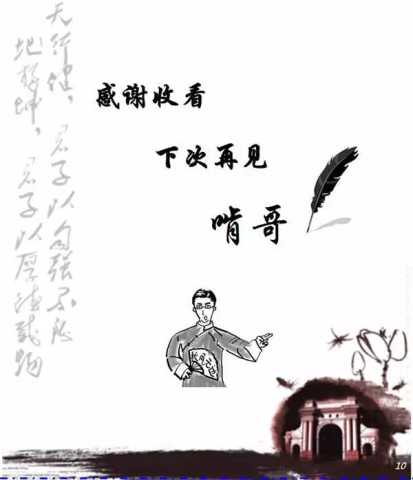 天行健，君子以自强不息
地势坤，君子以厚德载物
感谢收看
下次再见
啃哥
10